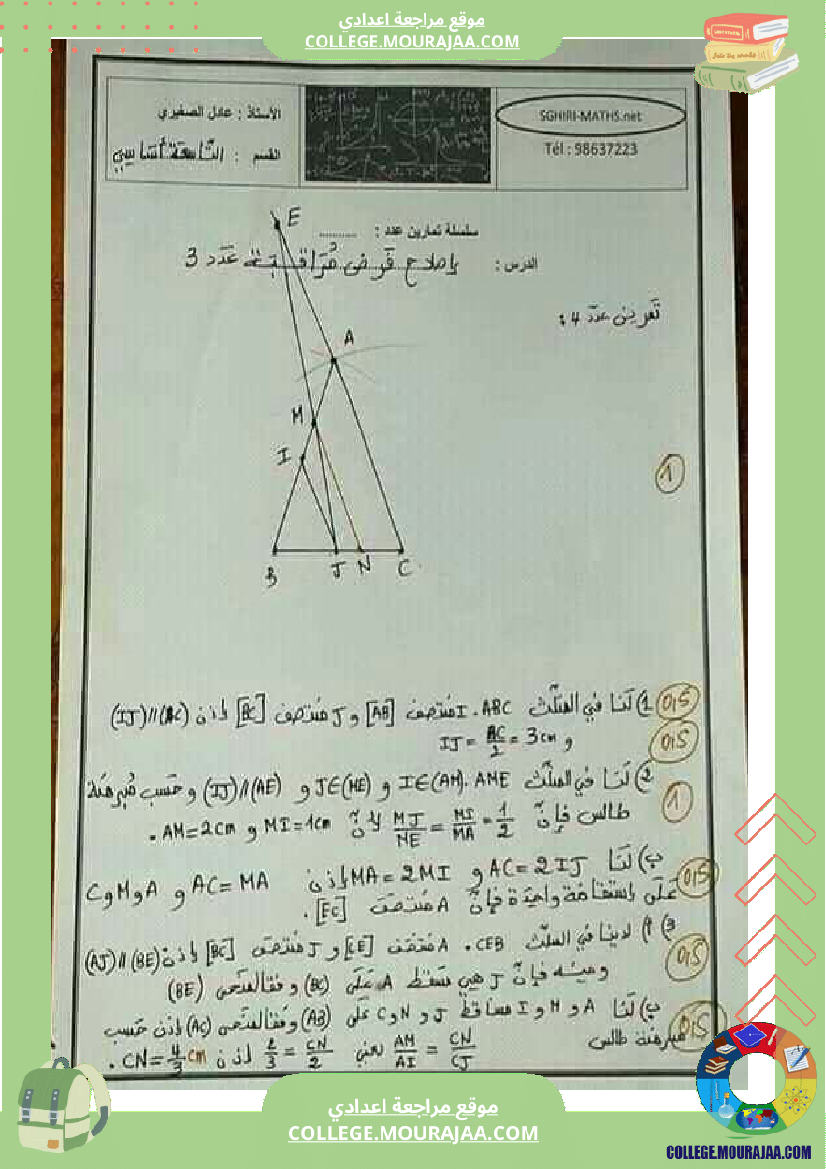 موقع مراجعة اعدادي
COLLEGE.MOURAJAA.COM
الأستاذ : عادل الصغيري
القسم : التاسعة أساسي
SGHIRI-MATHS.net
Tél : 98637223
سلسلة تمارين عدد : ..........
الدرس : إصلاح فرض مُراقبة عَدَد 3
تَمرين عدد 4 :
E
A
M
I
B J N C
1
0,5 1) لَنَا في المثلّث ABC. I مُنتصف [AB] و J مُنتصف [BC] إذن (IJ)//(AC)
0,5 و IJ = AC/2 = 3cm
2) لَنَا في المثلّث AME. I∈(AM) و J∈(ME) و (IJ)//(AE) و حَسب مُبرهنة
1 طالس فإنّ MJ/ME = MI/MA = 1/2 لأنّ MI=1cm و AM=2cm .
ب) لَنَا AC=2IJ و MA=2MI إذن AC=MA و A و M و C
0,5 عَلَى استقامة واحدة فإنّ A مُنتصف [EC] .
3) أ) لدينا في المثلّث CEB. A مُنتصف [CE] و J مُنتصف [BC] إذن (AJ)//(BE)
0,5 ومنه فإنّ J هي مسقط A عَلَى (BC) وفقا لمنحى (BE)
ب) لَنَا A و M و I مساقط J و N و C عَلَى (AB) وفقا لمنحى (AC) إذن حَسب
0,5 مبرهنة طالس CN/CJ = AM/AI يعني CN/2 = 2/3 إذن CN=4/3 cm .
موقع مراجعة اعدادي
COLLEGE.MOURAJAA.COM
COLLEGE.MOURAJAA.COM